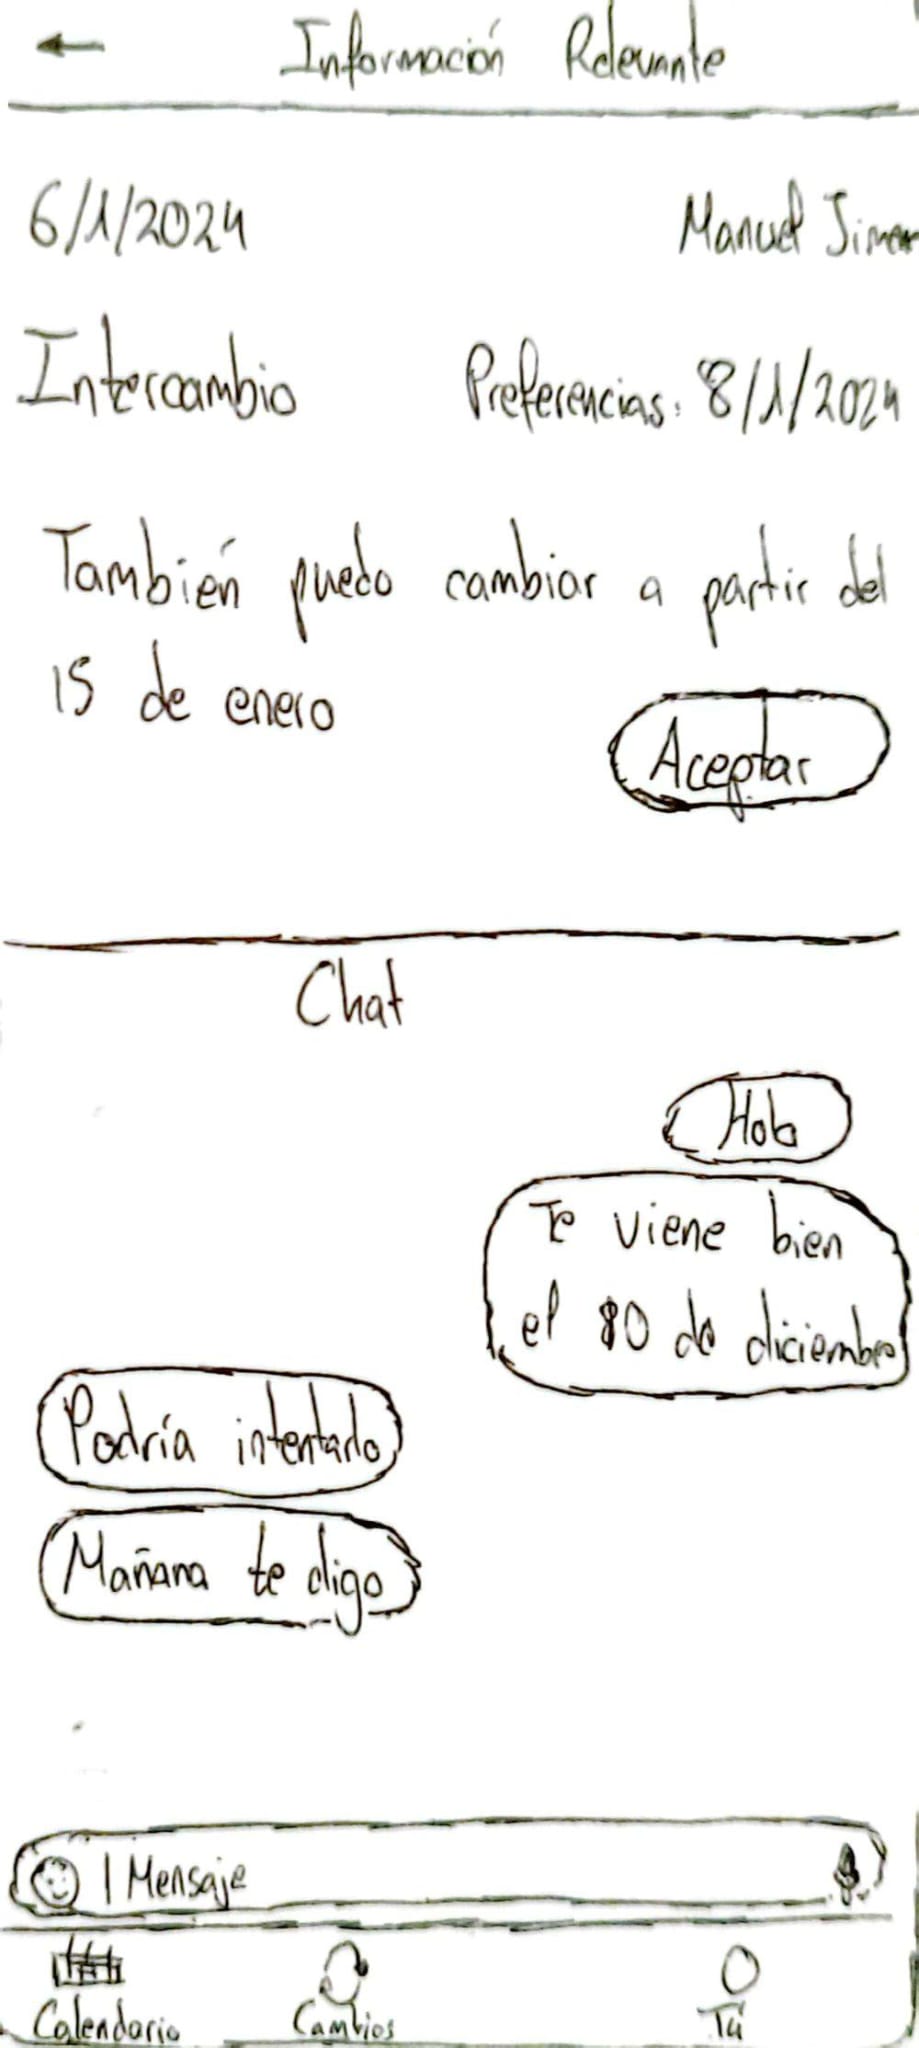 Información Relevante
6/1/2024 Manuel Jimen
Intercambio Preferencias: 8/1/2024
También puedo cambiar a partir del
15 de enero
Aceptar
Chat
Hola
Te viene bien
el 80 de diciembre
Podría intentarlo
Mañana te digo
| Mensaje
Calendario Cambios Tú